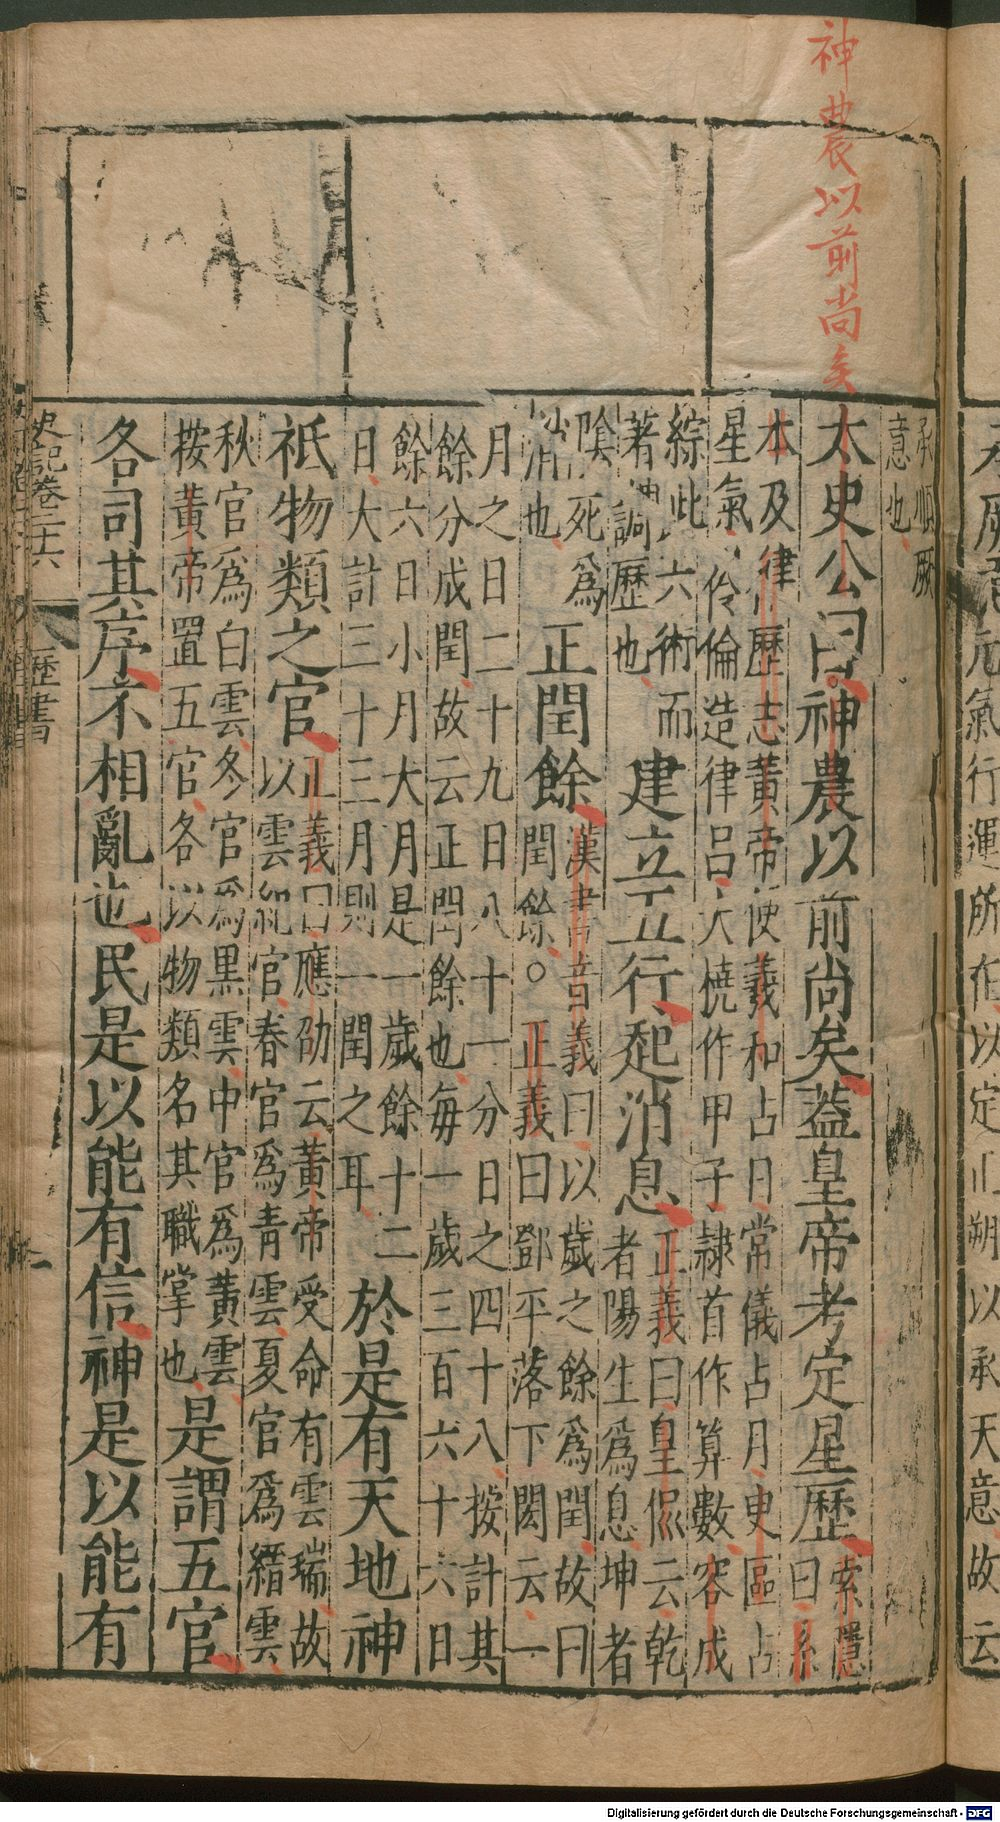 神農以前尚矣
元氣行運所在以定正朔以承天意故云
承順厥
意也
太史公曰神農以前尚矣蓋皇帝考定星歷
索隱
曰系
本及律歷志黃帝使羲和占日常儀占月臾區占
星氣伶倫造律呂大橈作甲子隸首作算數容成
綜此六術而
著調歷也
建立五行起消息
正義曰皇侃云乾
者陽生爲息坤者
陰死爲
消也
正閏餘
漢書音義曰以歲之餘爲閏故曰
閏餘。正義曰鄧平落下閎云一
月之日二十九日八十一分日之四十八按計其
餘分成閏故云正閏餘也每一歲三百六十六日
餘六日小月大月是一歲餘十二
日大計三十三月則一閏之耳
於是有天地神
祇物類之官
正義曰應劭云黃帝受命有雲瑞故
以雲紀官春官爲青雲夏官爲縉雲
秋官爲白雲冬官爲黑雲中官爲黃雲
按黃帝置五官各以物類名其職掌也
是謂五官
各司其序不相亂也民是以能有信神是以能有
史記卷二十六 歷書
Digitalisierung gefördert durch die Deutsche Forschungsgemeinschaft - DFG